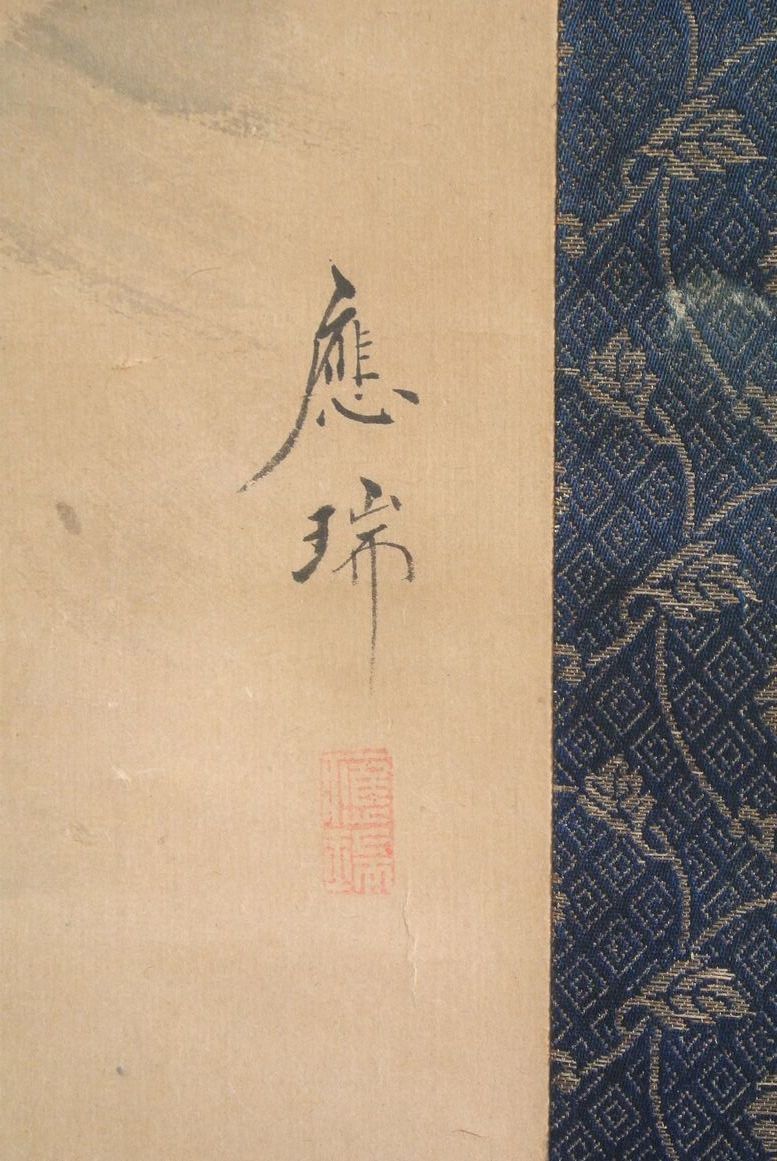 應瑞
應瑞